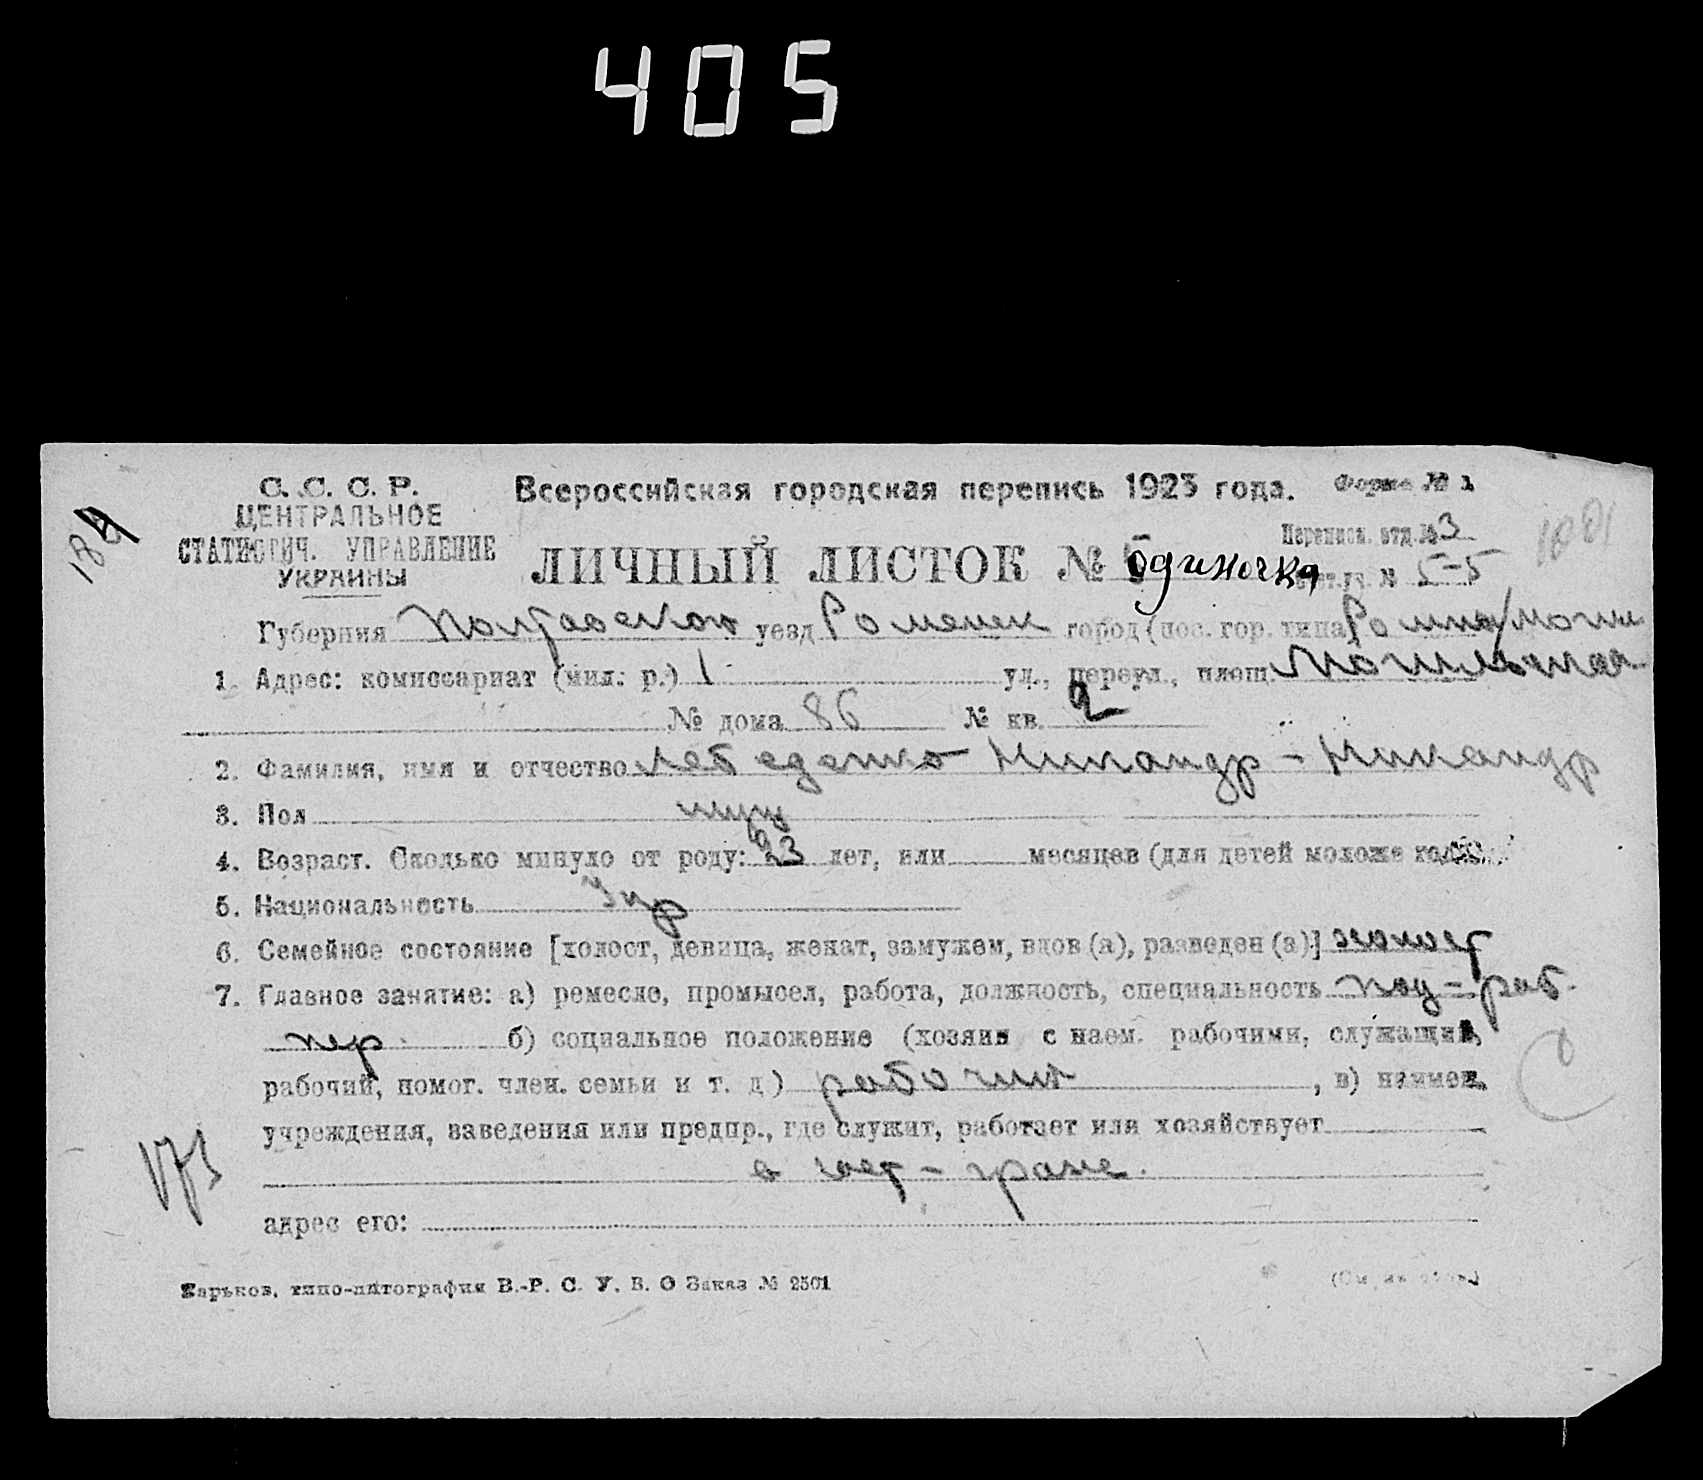 405
С. С. С. Р.
ЦЕНТРАЛЬНОЕ
СТАТИСТИЧ. УПРАВЛЕНИЕ
УКРАИНЫ
Всероссийская городская перепись 1923 года. Форма № 1
Перепиcн. отд. № 3
ЛИЧНЫЙ ЛИСТОК № одиночка № 5-5
Губерния Полтавская уезд Роменск город (пос. гор. типа Ромны
1. Адрес: комиссариат (мил. р.) 1 ул., переул., площ.
№ дома 86 № кв. 2
2. Фамилия, имя и отчество Лебеденко Никандр - Никандр
3. Пол муж
4. Возраст. Сколько минуло от роду: 23 лет, или месяцев (для детей моложе
5. Национальность Укр
6. Семейное состояние [холост, девица, женат, замужем, вдов (а), разведен (а)]
7. Главное занятие: а) ремесло, промысел, работа, должность, специальность раб.
б) социальное положение (хозяин с наем. рабочими, служащий,
рабочий, помог. член. семьи и т. д) рабочий , в) наимен.
учреждения, заведения или предпр., где служит, работает или хозяйствует
в
адрес его:
Харьков, типо-литография В.-Р. С. У. В. О Заказ № 2501